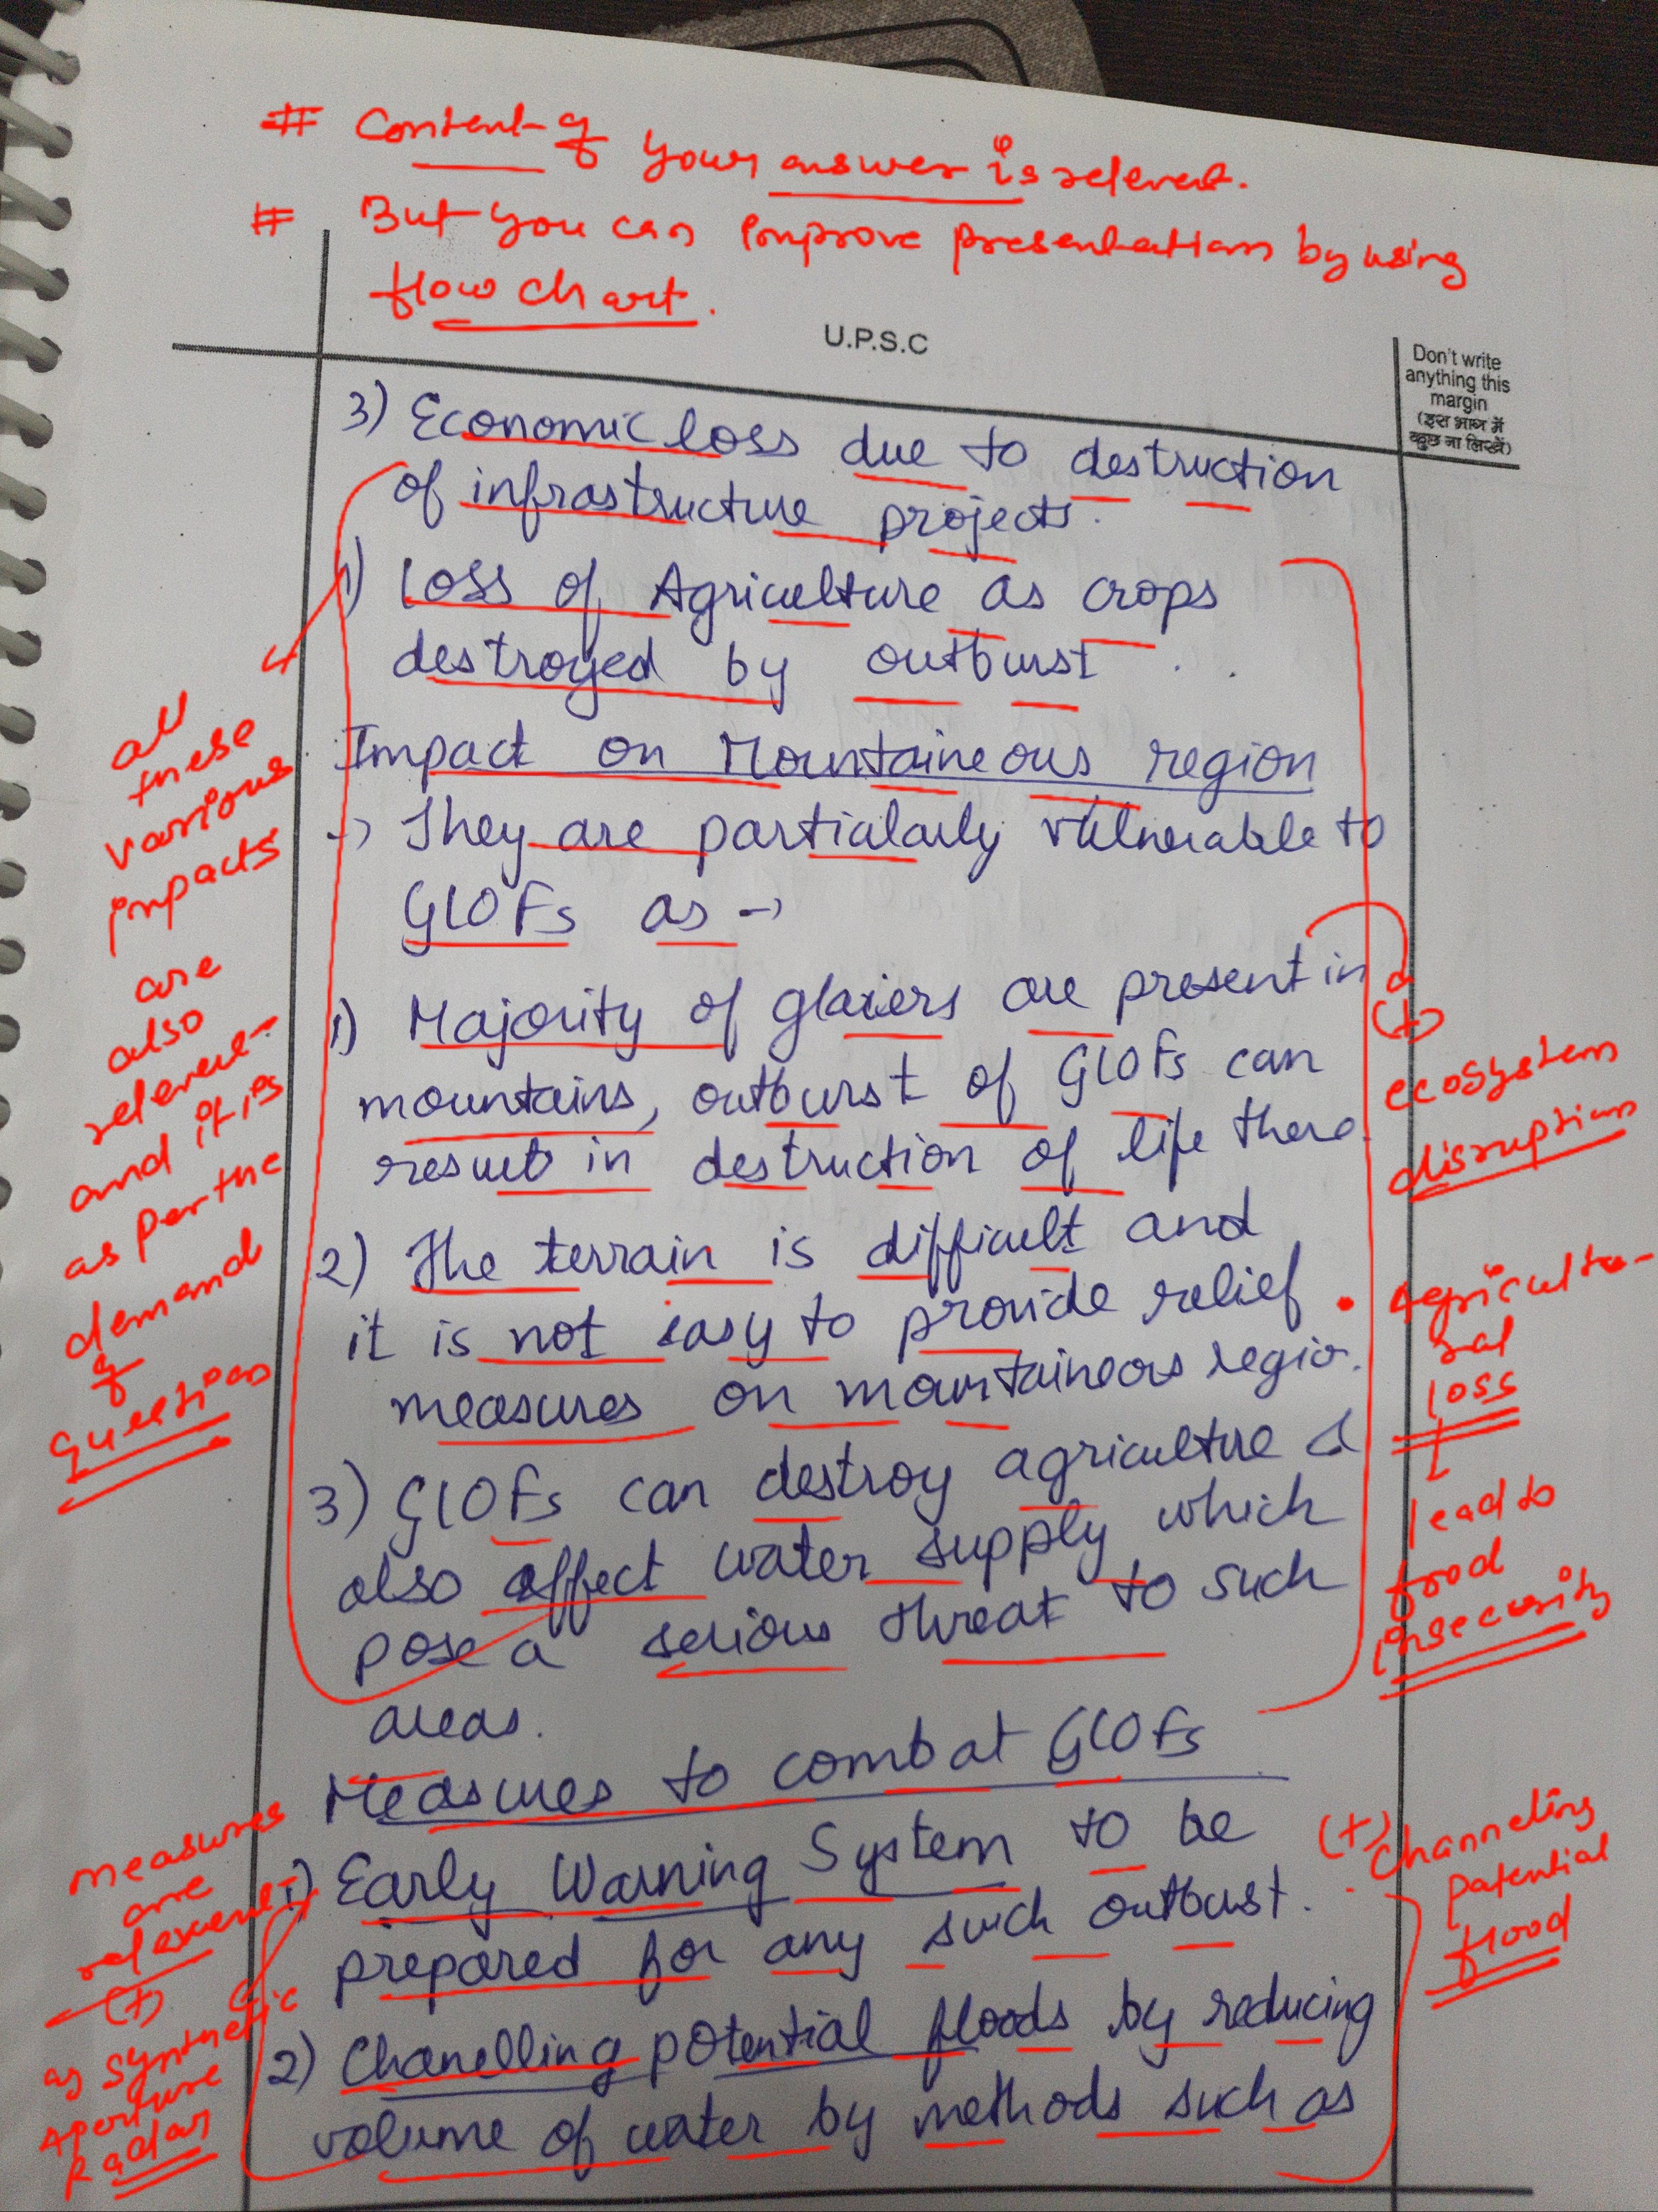 # Content of your answer is relevent.
# But you can improve presentation by using
flow chart.
U.P.S.C
Don't write
anything this
margin
(इस भाग में
कुछ ना लिखें)
3) Economic loss due to destruction
of infrastructure projects.
1) Loss of Agriculture as crops
destroyed by outburst.
Impact on Mountaineous region
→ They are particularly vulnerable to
GLOFs as →
1) Majority of glaciers are present in
mountains, outburst of GLOFs can
result in destruction of life there.
2) The terrain is difficult and
it is not easy to provide relief
measures on mountaineous region.
3) GLOFs can destroy agriculture &
also affect water supply which
pose a serious threat to such
areas.
Measures to combat GLOFs
1) Early Warning System to be
prepared for any such outburst.
2) Chanelling potential floods by reducing
volume of water by methods such as
all
these
various
impacts
are
also
relevent
and it is
as per the
demand
of
question
(+)
ecosystem
disruption
• Agricultu-
ral
loss
↓
lead to
food
insecurity
measures
are
relevent
(+)
as Synthetic
Aperture
Radar
(+)
• Channeling
potential
flood